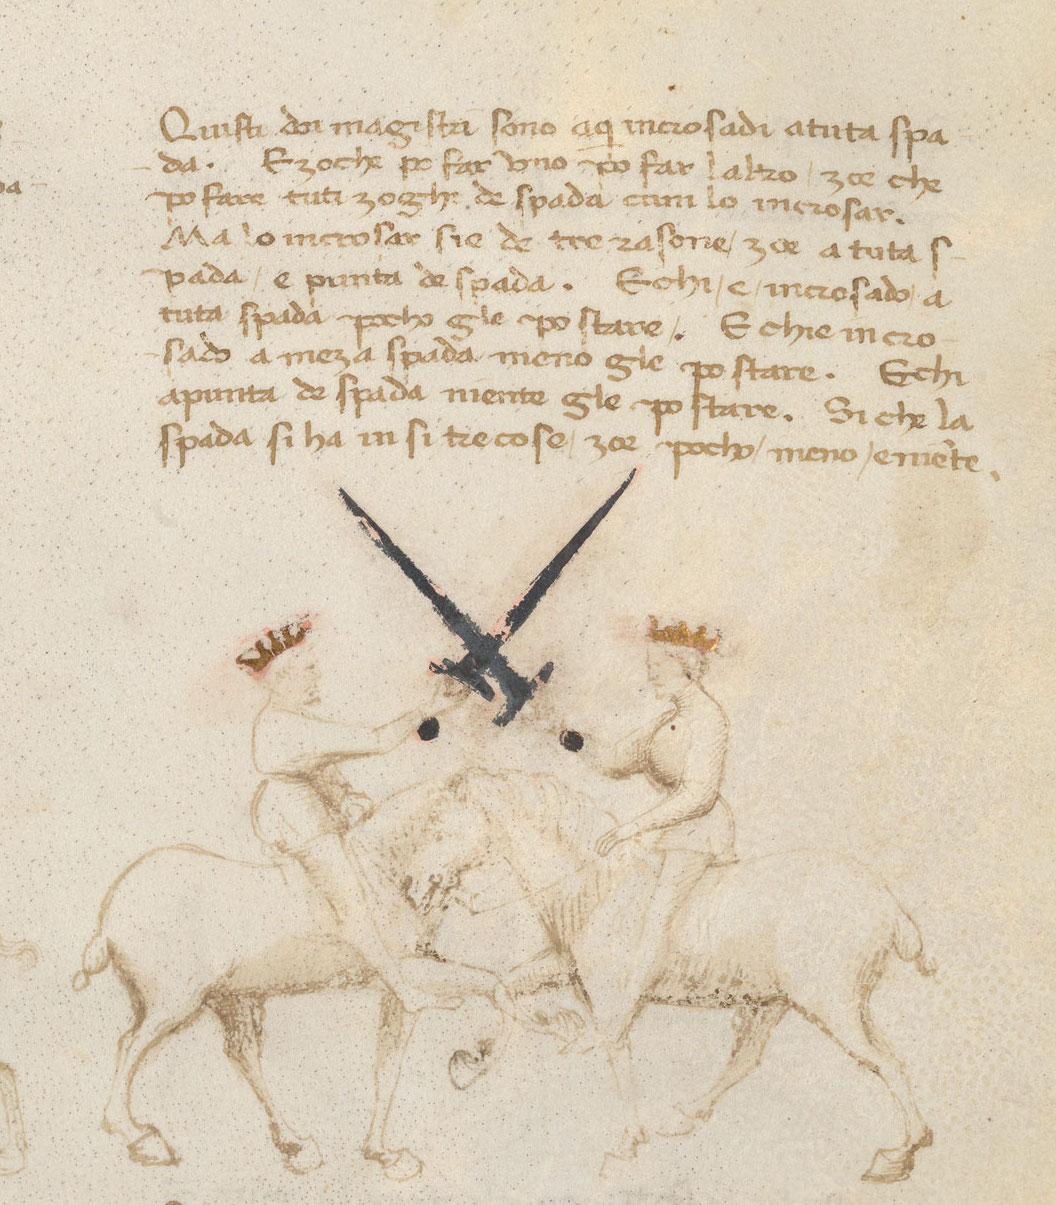 Quisti doi magistri sono aq̃ incrosadi a tuta spa-
-da. E zo che po far uno po far l altro / zoe che
po fare tuti zoghi de spada cum lo incrosar.
Ma lo incrosar sie de tre rasone / zoe a tuta s-
pada / e punta de spada. E chi / e / incrosado a
tuta spada pocho gle po stare /. E chi e in cro-
-sado a meza spada meno gle po stare. E chi
a punta de spada niente gle po stare. Si che la
spada si ha in si tre cose / zoe pocho / meno / e niẽte.